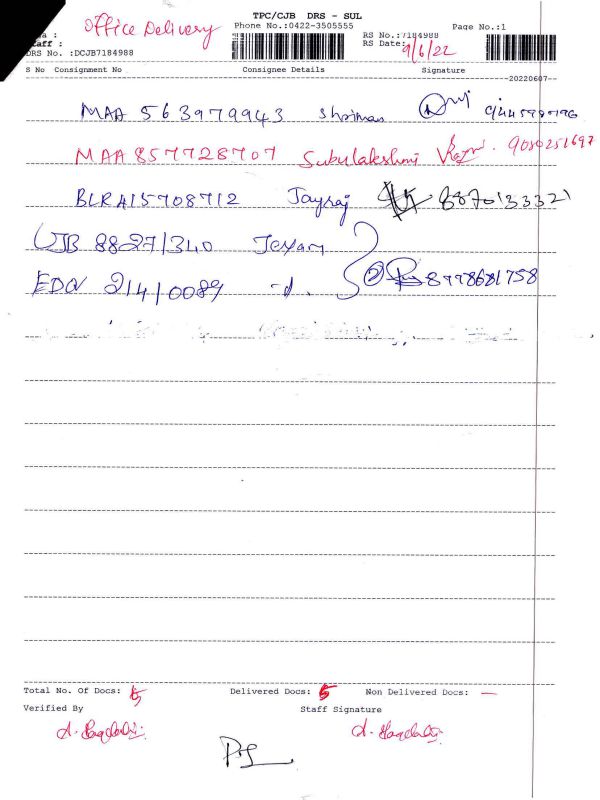 Office Delivery
TPC/CJB DRS - SUL
Phone No.:0422-3505555
Page No.:1
RS No.:7184988
RS Date: 9/6/22
taff :
DRS No. :DCJB7184988
S No Consignment No Consignee Details Signature
20220607
MAA 563979943
MAA 857728707 Subulakshmi 9080251697
BLRA15708712 Jayraj 8870133321
CJB 88271340
EDQ 21410089 8778681758
Total No. Of Docs: 5 Delivered Docs: 5 Non Delivered Docs: —
Verified By Staff Signature